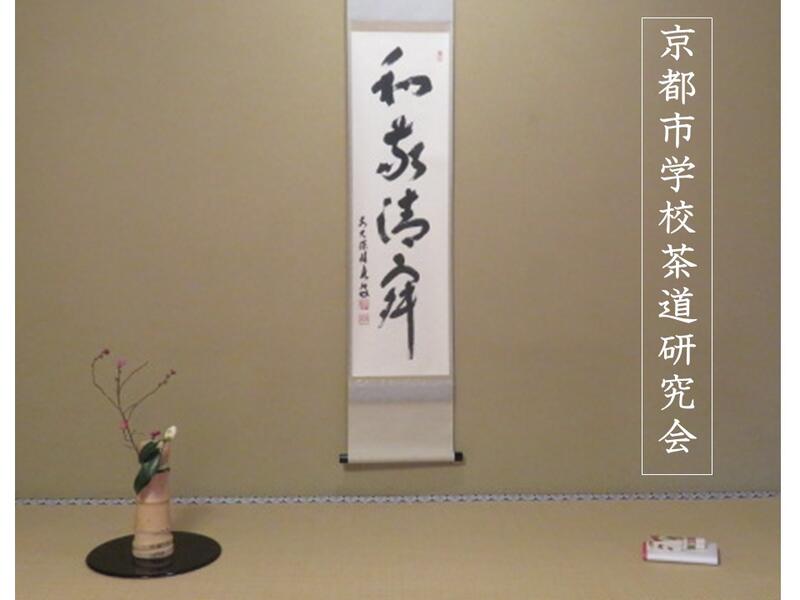 京都市学校茶道研究会
和敬清寂